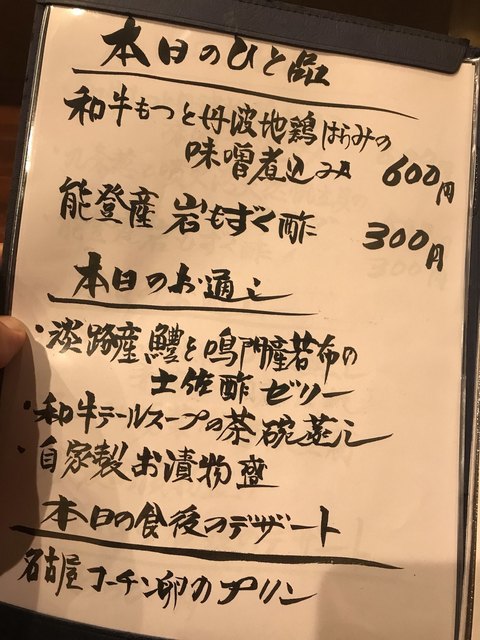 本日のひと品
和牛もつと丹波地鶏はらみの
味噌煮込み 600円
能登産 岩もずく酢 300円
本日のお通し
・淡路産鱧と鳴門産若布の
土佐酢ゼリー
・和牛テールスープの茶碗蒸し
・自家製お漬物盛
本日の食後のデザート
名古屋コーチン卵のプリン